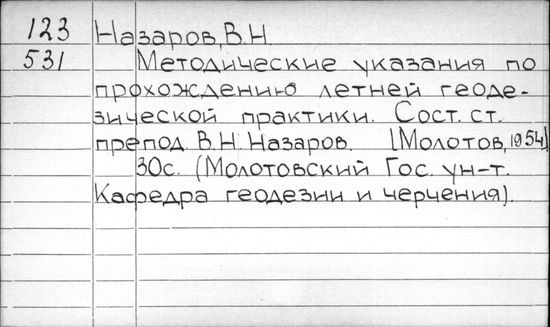 123 Назаров, В.Н.
531 Методические указания по
прохождению летней геоде-
зической практики. Сост. ст.
препод. В.Н. Назаров. [Молотов, 1954]
30с. (Молотовский Гос. ун-т.
Кафедра геодезии и черчения).